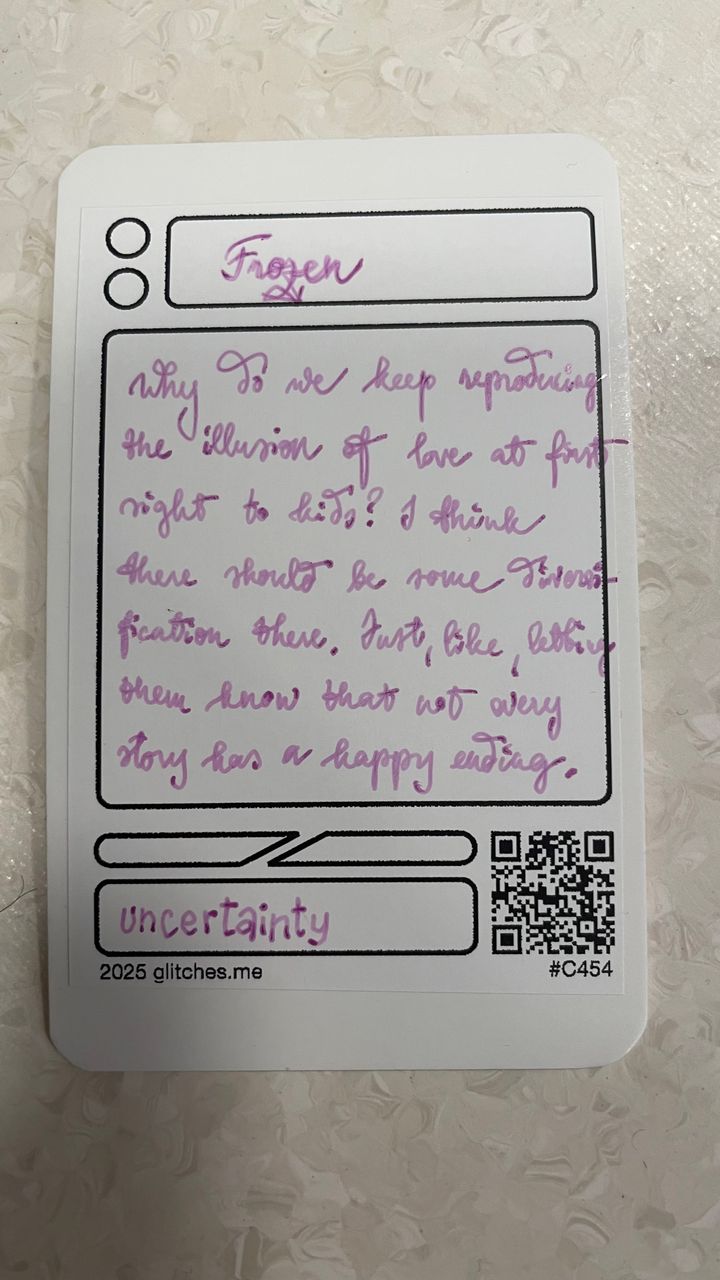 Frozen
Why do we keep reproducing
the illusion of love at first
sight to kids? I think
there should be some diversi-
fication there. Just, like, letting
them know that not every
story has a happy ending.
uncertainty
2025 glitches.me
#C454